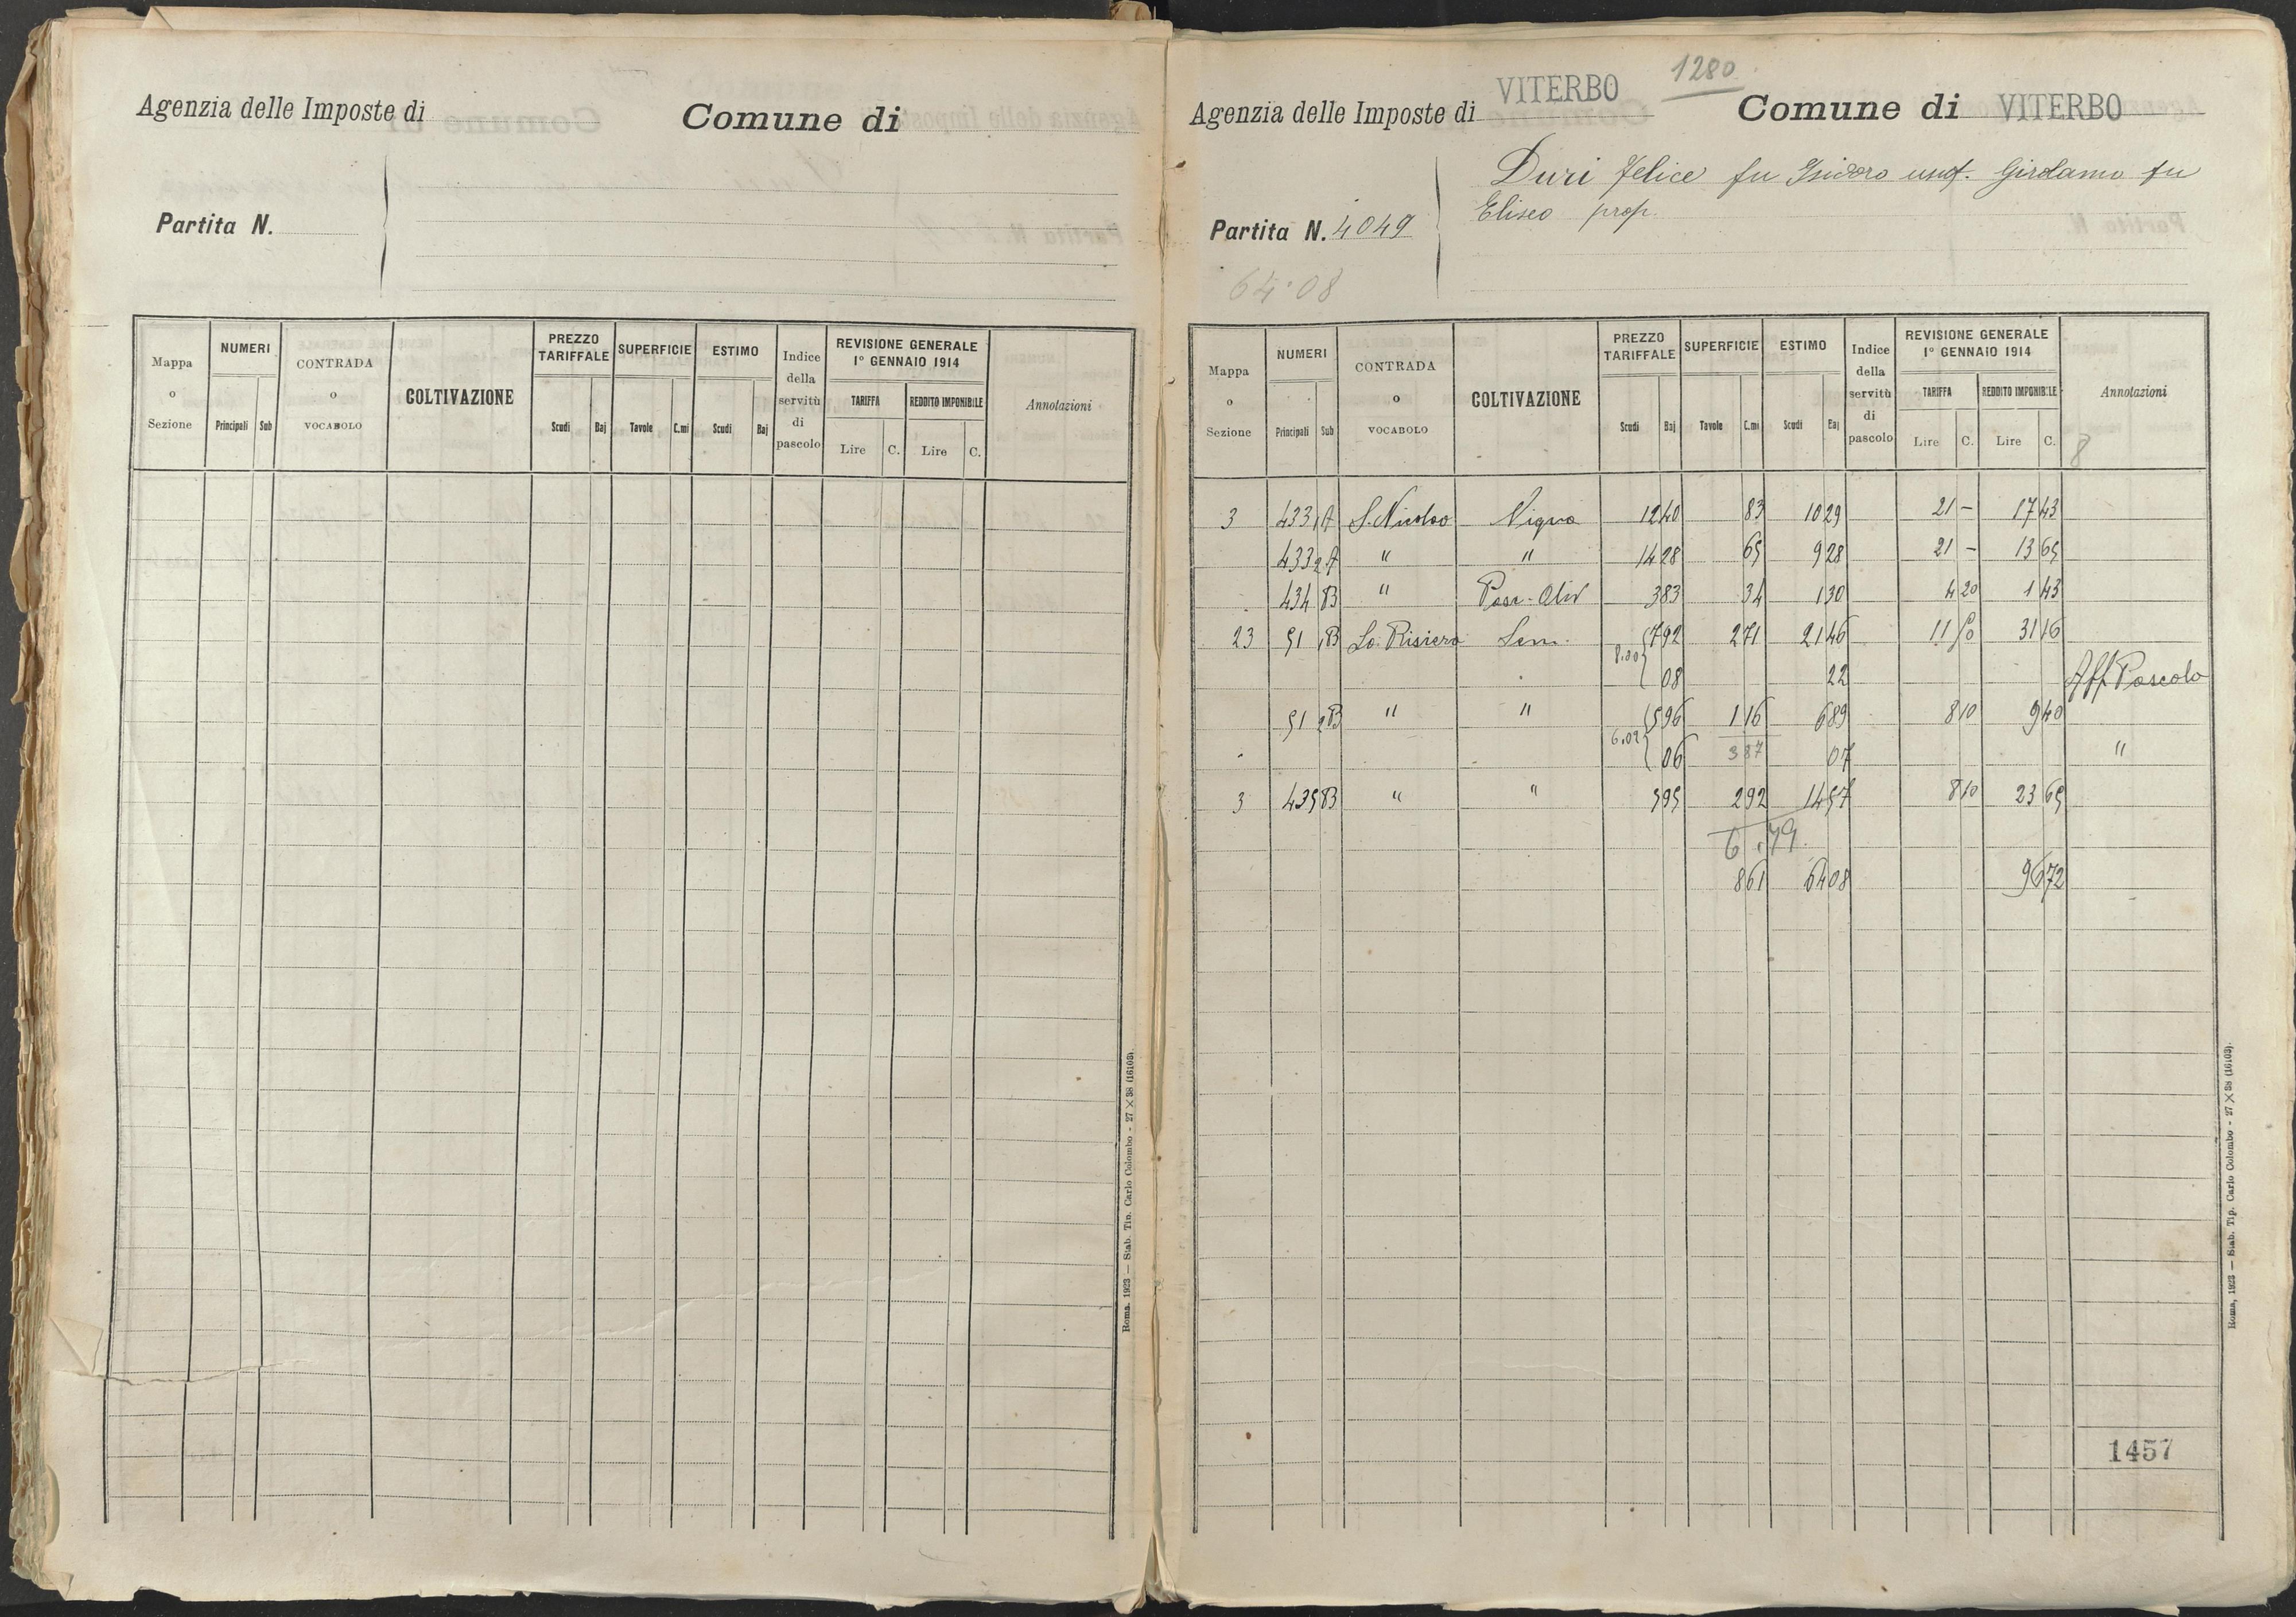 Agenzia delle Imposte di
Comune di
Partita N.
Mappa o Sezione
NUMERI
Principali Sub
CONTRADA o VOCABOLO
COLTIVAZIONE
PREZZO TARIFFALE
Scudi Baj
SUPERFICIE
Tavole C.mi
ESTIMO
Scudi Baj
Indice della servitù di pascolo
REVISIONE GENERALE
1° GENNAIO 1914
TARIFFA REDDITO IMPONIBILE
Lire C. Lire C.
Annotazioni
Roma. 1923 — Stab. Tip. Carlo Colombo - 27 X 38 (16103).
1280
Agenzia delle Imposte di VITERBO
Comune di VITERBO
Duri Felice fu Isidoro usuf. Girolamo fu
Eliseo prop.
Partita N. 4049
64.08
Mappa o Sezione
NUMERI
Principali Sub
CONTRADA o VOCABOLO
COLTIVAZIONE
PREZZO TARIFFALE
Scudi Baj
SUPERFICIE
Tavole C.mi
ESTIMO
Scudi Baj
Indice della servitù di pascolo
REVISIONE GENERALE
1° GENNAIO 1914
TARIFFA REDDITO IMPONIBILE
Lire C. Lire C.
Annotazioni
8
3 433 1A S. Nicolao Vigna 12 40 83 10 29 21 - 17 43
433 2A " " 14 28 65 9 28 21 - 13 65
434 B " Pasc. Oliv 3 83 34 1 30 4 20 1 43
23 51 1B La Risiera Sem. 7 92 2 71 21 46 11 50 31 16
8.00 08 22 Aff. Pascolo
51 2B " " 5 96 1 16 6 89 8 10 9 40
6.02 06 3 87 07 "
3 435 B " " 5 95 2 92 14 57 8 10 23 65
6.79
8 61 64 08 96 72
1457
Roma, 1923 — Stab. Tip. Carlo Colombo - 27 X 38 (16103).